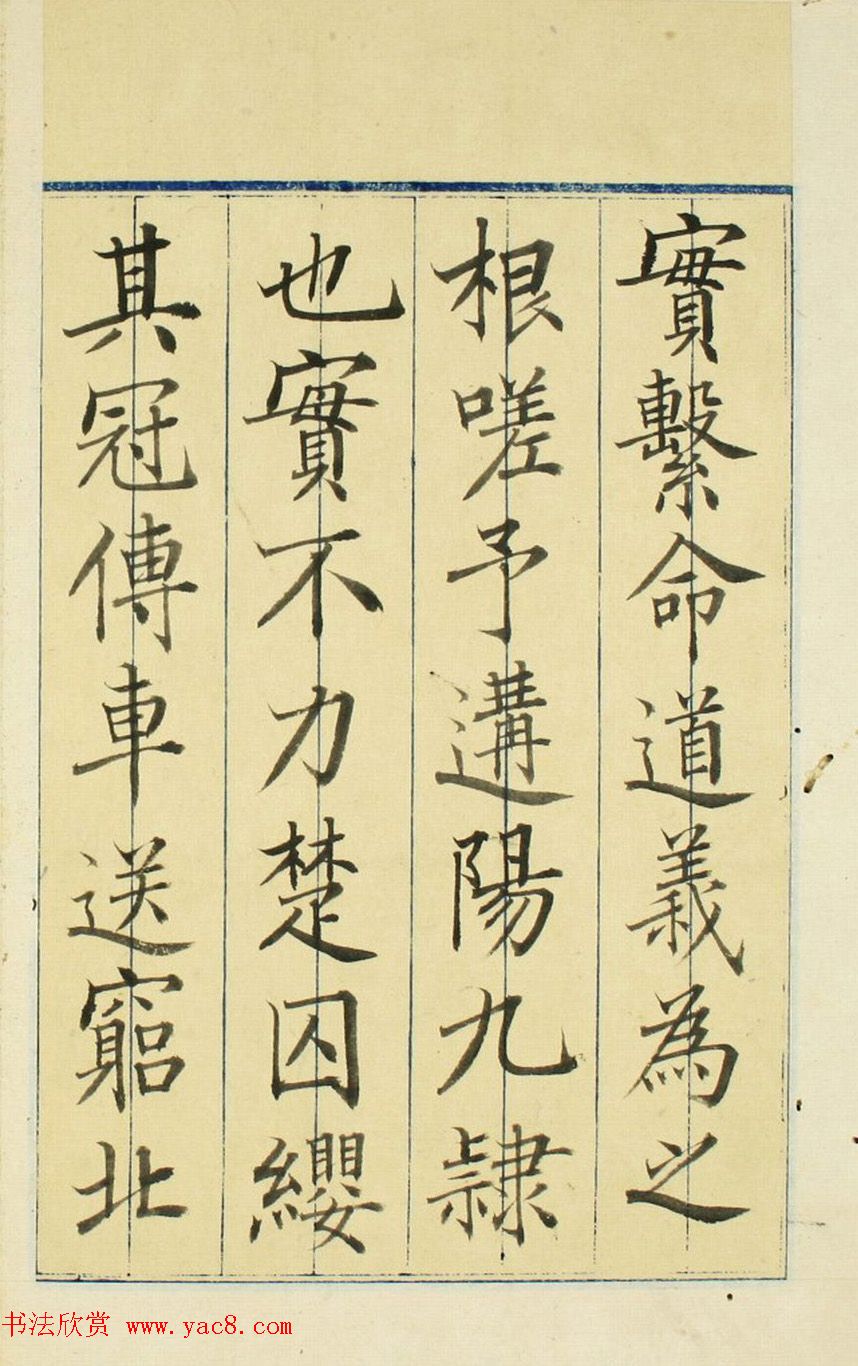 實繫命道義為之
根嗟予遘陽九隷
也實不力楚囚纓
其冠傳車送窮北
书法欣赏 www.yac8.com